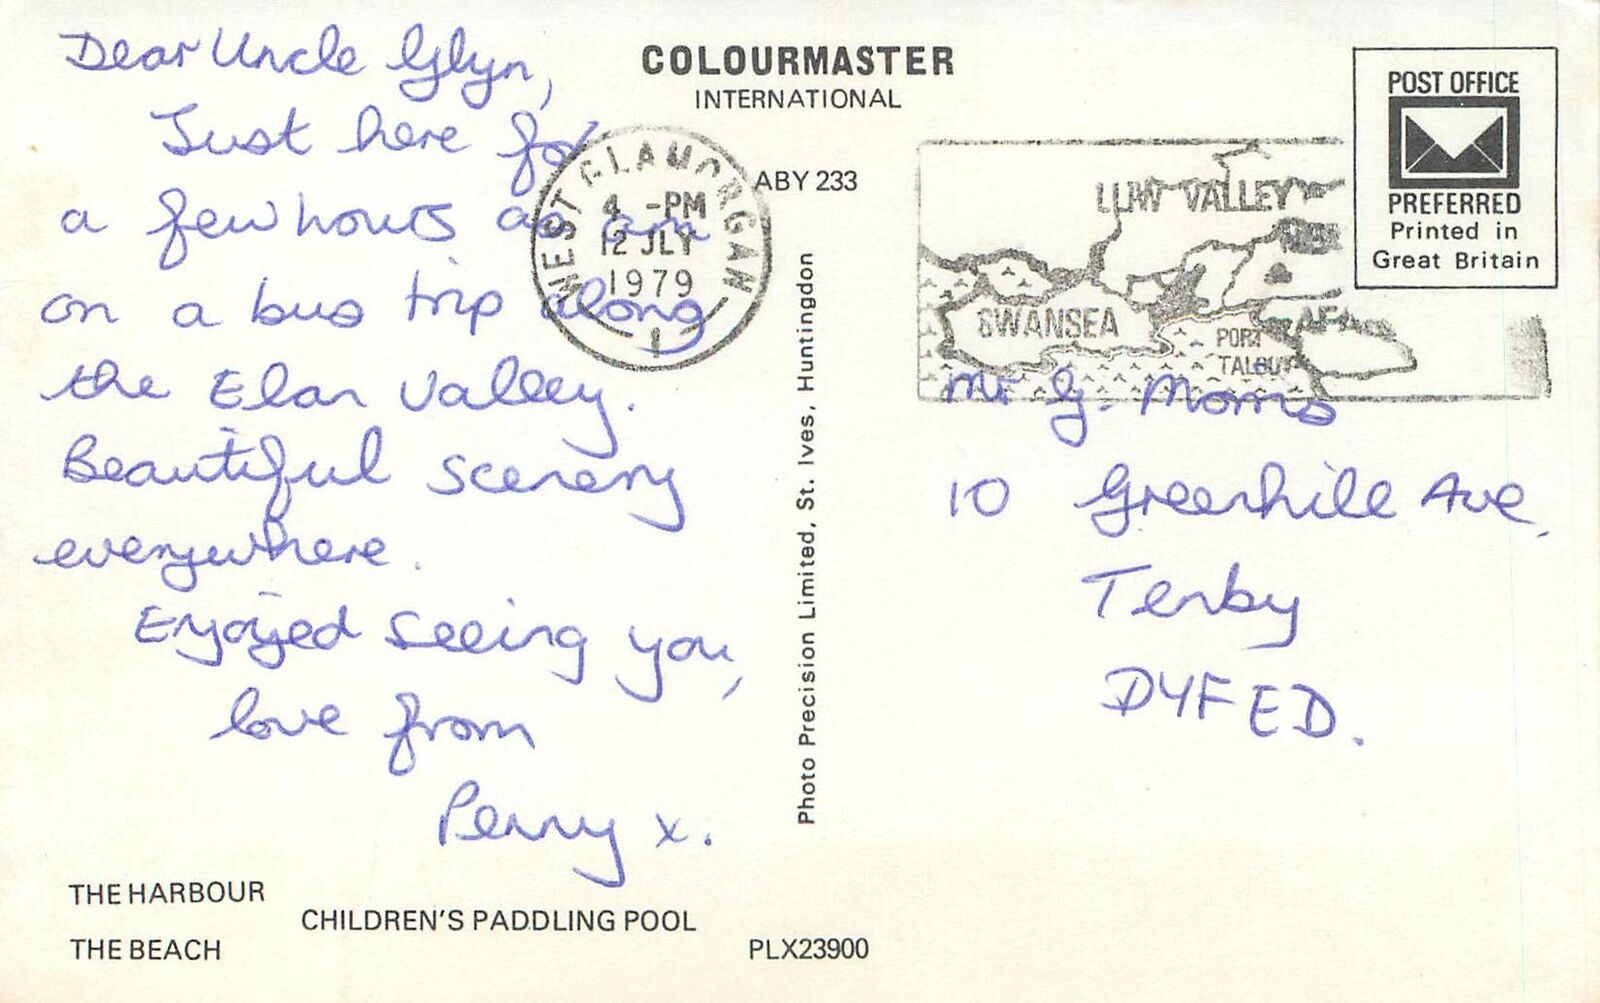 Dear Uncle Glyn,
Just here for
a few hours as am
on a bus trip along
the Elan Valley.
Beautiful scenery
everywhere.
Enjoyed seeing you,
love from
Penny x.
THE HARBOUR
CHILDREN'S PADDLING POOL
THE BEACH
PLX23900
COLOURMASTER
INTERNATIONAL
ABY 233
Photo Precision Limited, St. Ives, Huntingdon
WEST GLAMORGAN
4 -PM
12 JLY
1979
1
VALLEY
SWANSEA
PORT
TALBOT
POST OFFICE
PREFERRED
Printed in
Great Britain
Mr G. Morris
10 Greenhill Ave,
Tenby
DYFED.